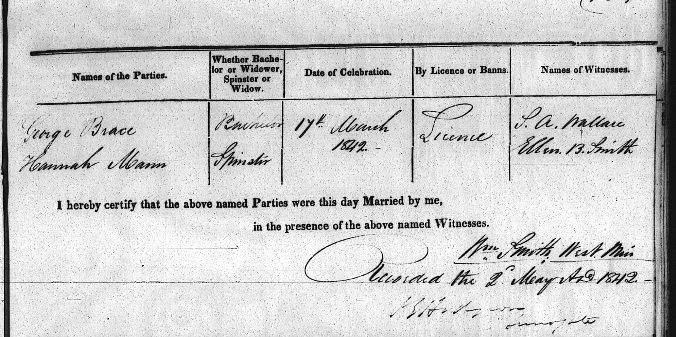 Names of the Parties. Whether Bache- lor or Widower, Spinster or Widow. Date of Celebration. By Licence or Banns. Names of Witnesses.
George Brace Bachelor 17th March 1842.- Licence S. A. Wallace
Hannah Mann Spinster Ellen B. Smith
I hereby certify that the above named Parties were this day Married by me,
in the presence of the above named Witnesses.
Wm Smith, West. Min
Recorded the 2d May AD 1842.-